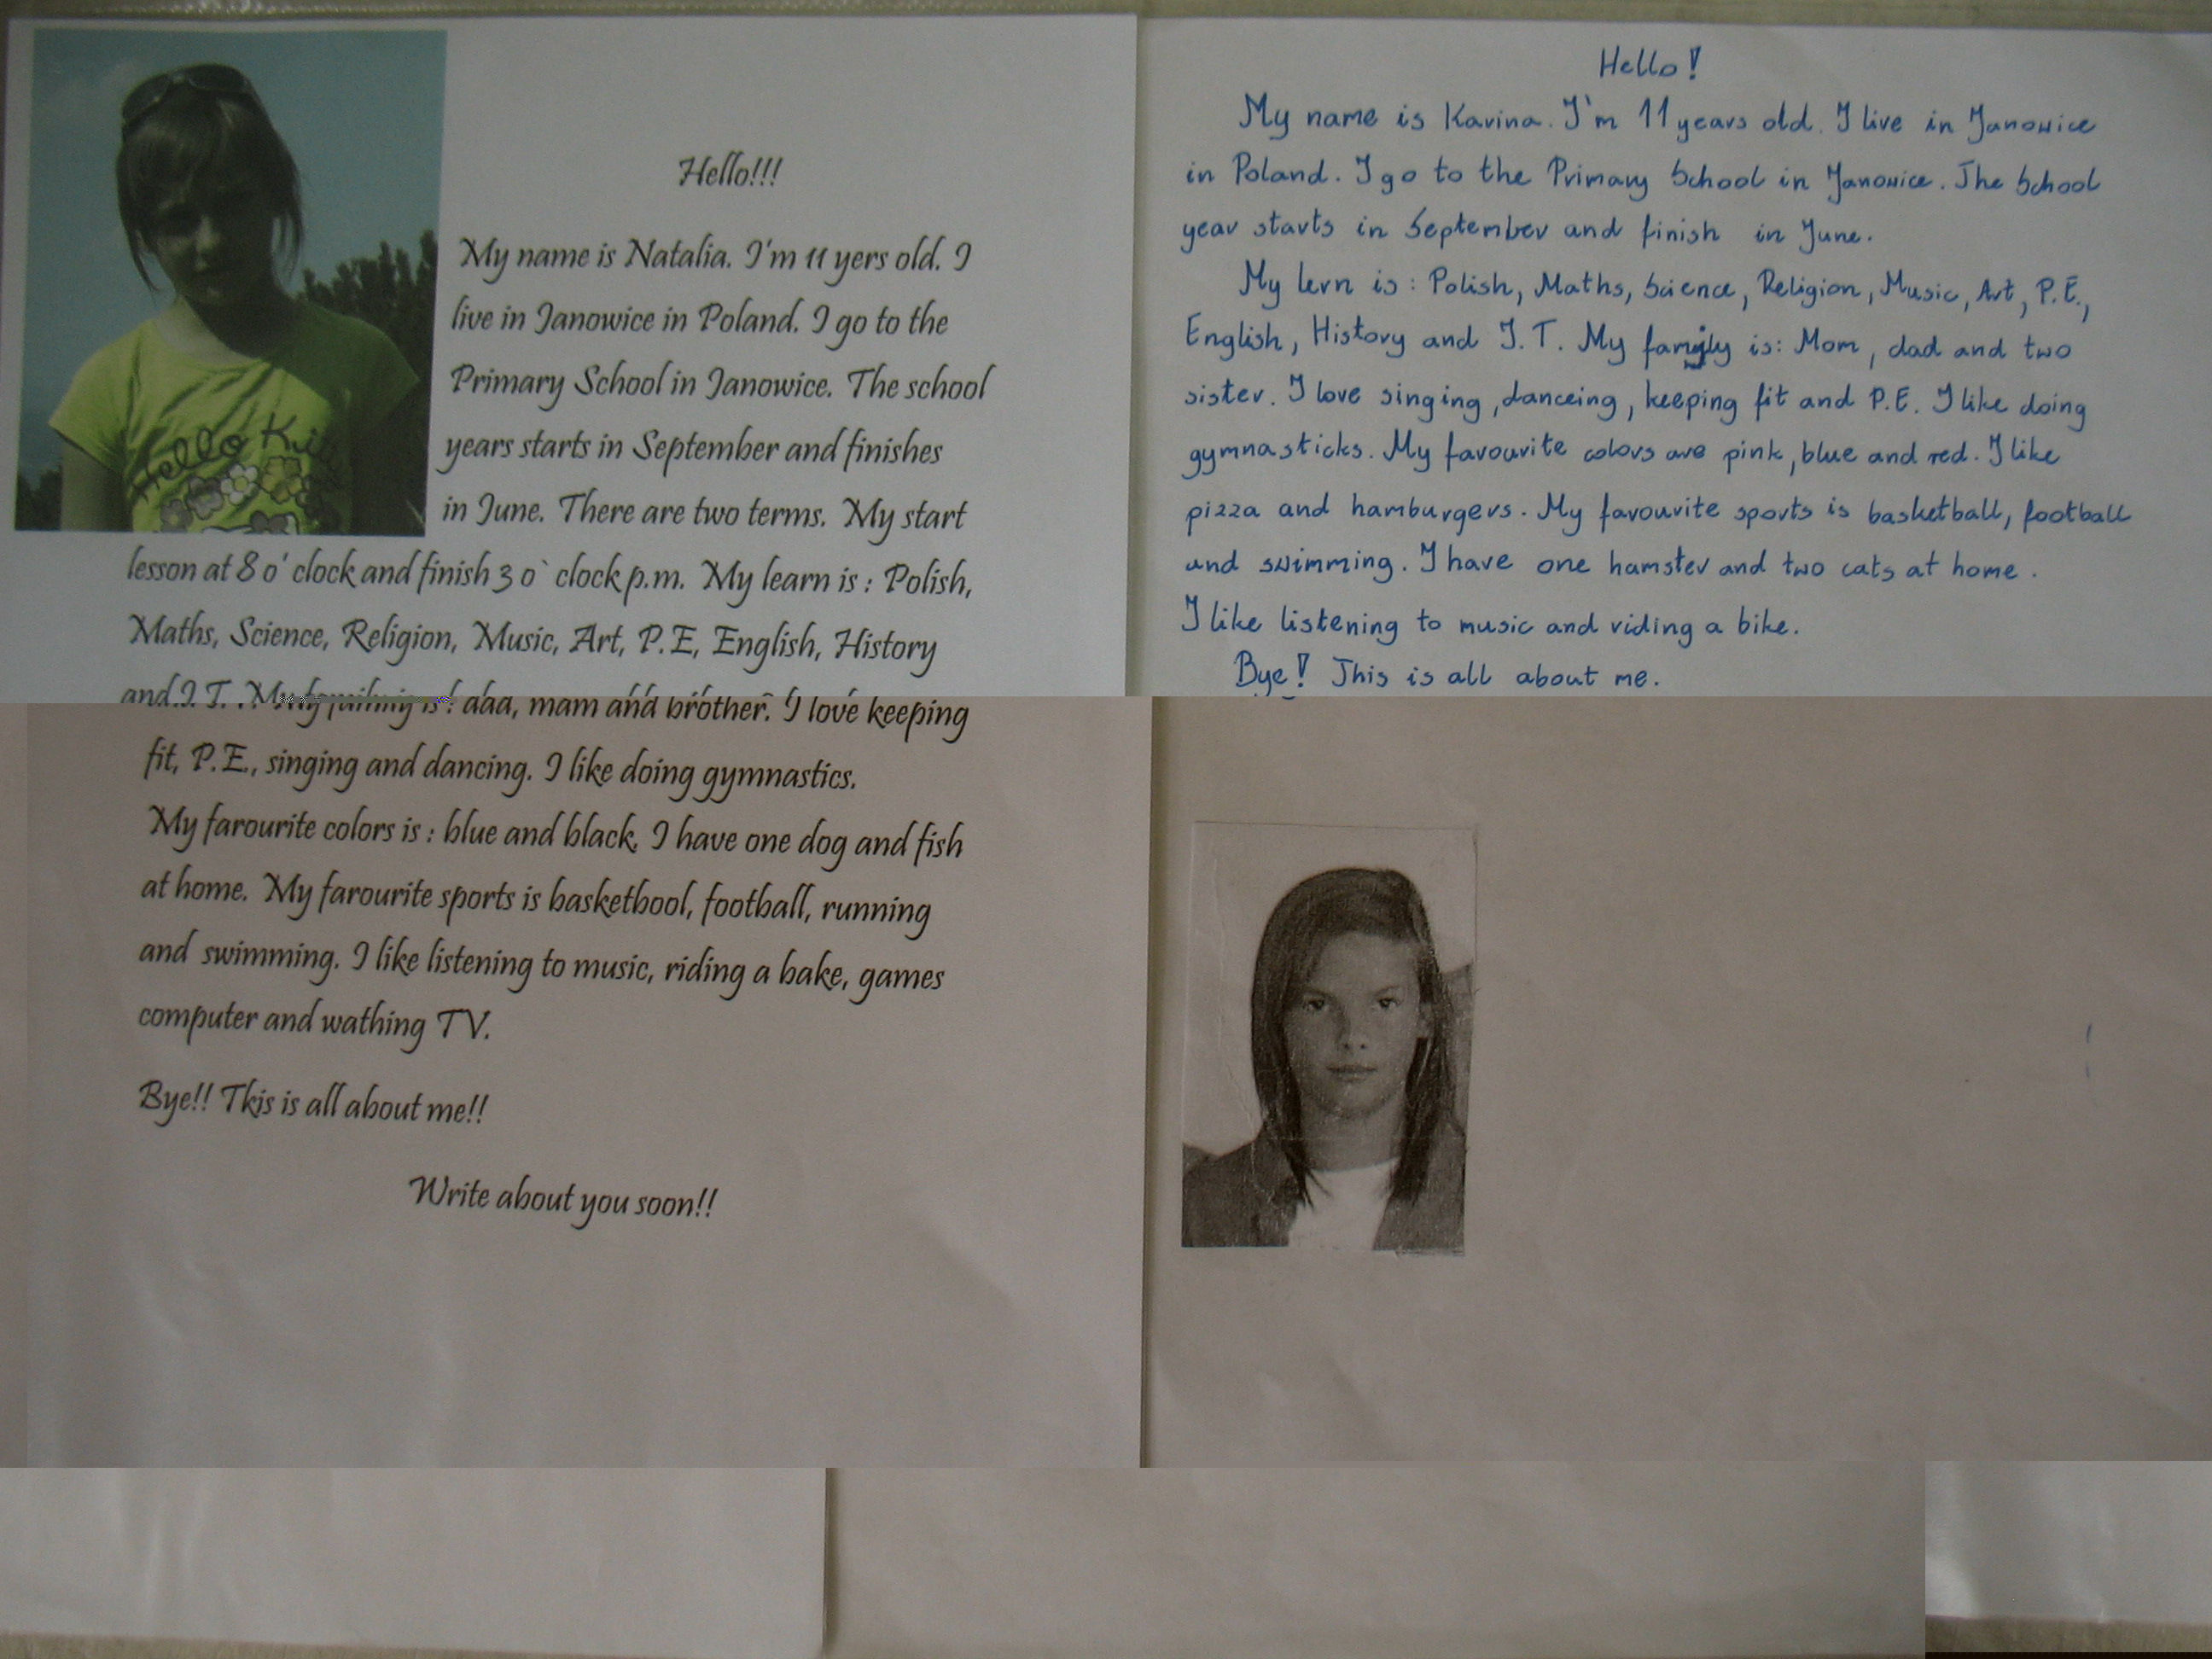 Hello Kitty
Hello!!!
My name is Natalia. I'm 11 yers old. I
live in Janowice in Poland. I go to the
Primary School in Janowice. The school
years starts in September and finishes
in June. There are two terms. My start
lesson at 8 o' clock and finish 3 o` clock p.m. My learn is : Polish,
Maths, Science, Religion, Music, Art, P.E, English, History
and I T. . My family is : dad, mam and brother. I love keeping
fit, P.E., singing and dancing. I like doing gymnastics.
My farourite colors is : blue and black. I have one dog and fish
at home. My farourite sports is basketbool, football, running
and swimming. I like listening to music, riding a bake, games
computer and wathing TV.
Bye!! Tkis is all about me!!
Write about you soon!!
Hello!
My name is Karina. I'm 11 years old. I live in Janowice
in Poland. I go to the Primary School in Janowice. The School
year starts in September and finish in June.
My lern is : Polish, Maths, Science, Religion, Music, Art, P.E.,
English, History and I.T. My family is: Mom, dad and two
sister. I love singing, danceing, keeping fit and P.E. I like doing
gymnasticks. My favourite colors are pink, blue and red. I like
pizza and hamburgers. My favourite sports is basketball, football
and swimming. I have one hamster and two cats at home.
I like listening to music and riding a bike.
Bye! This is all about me.